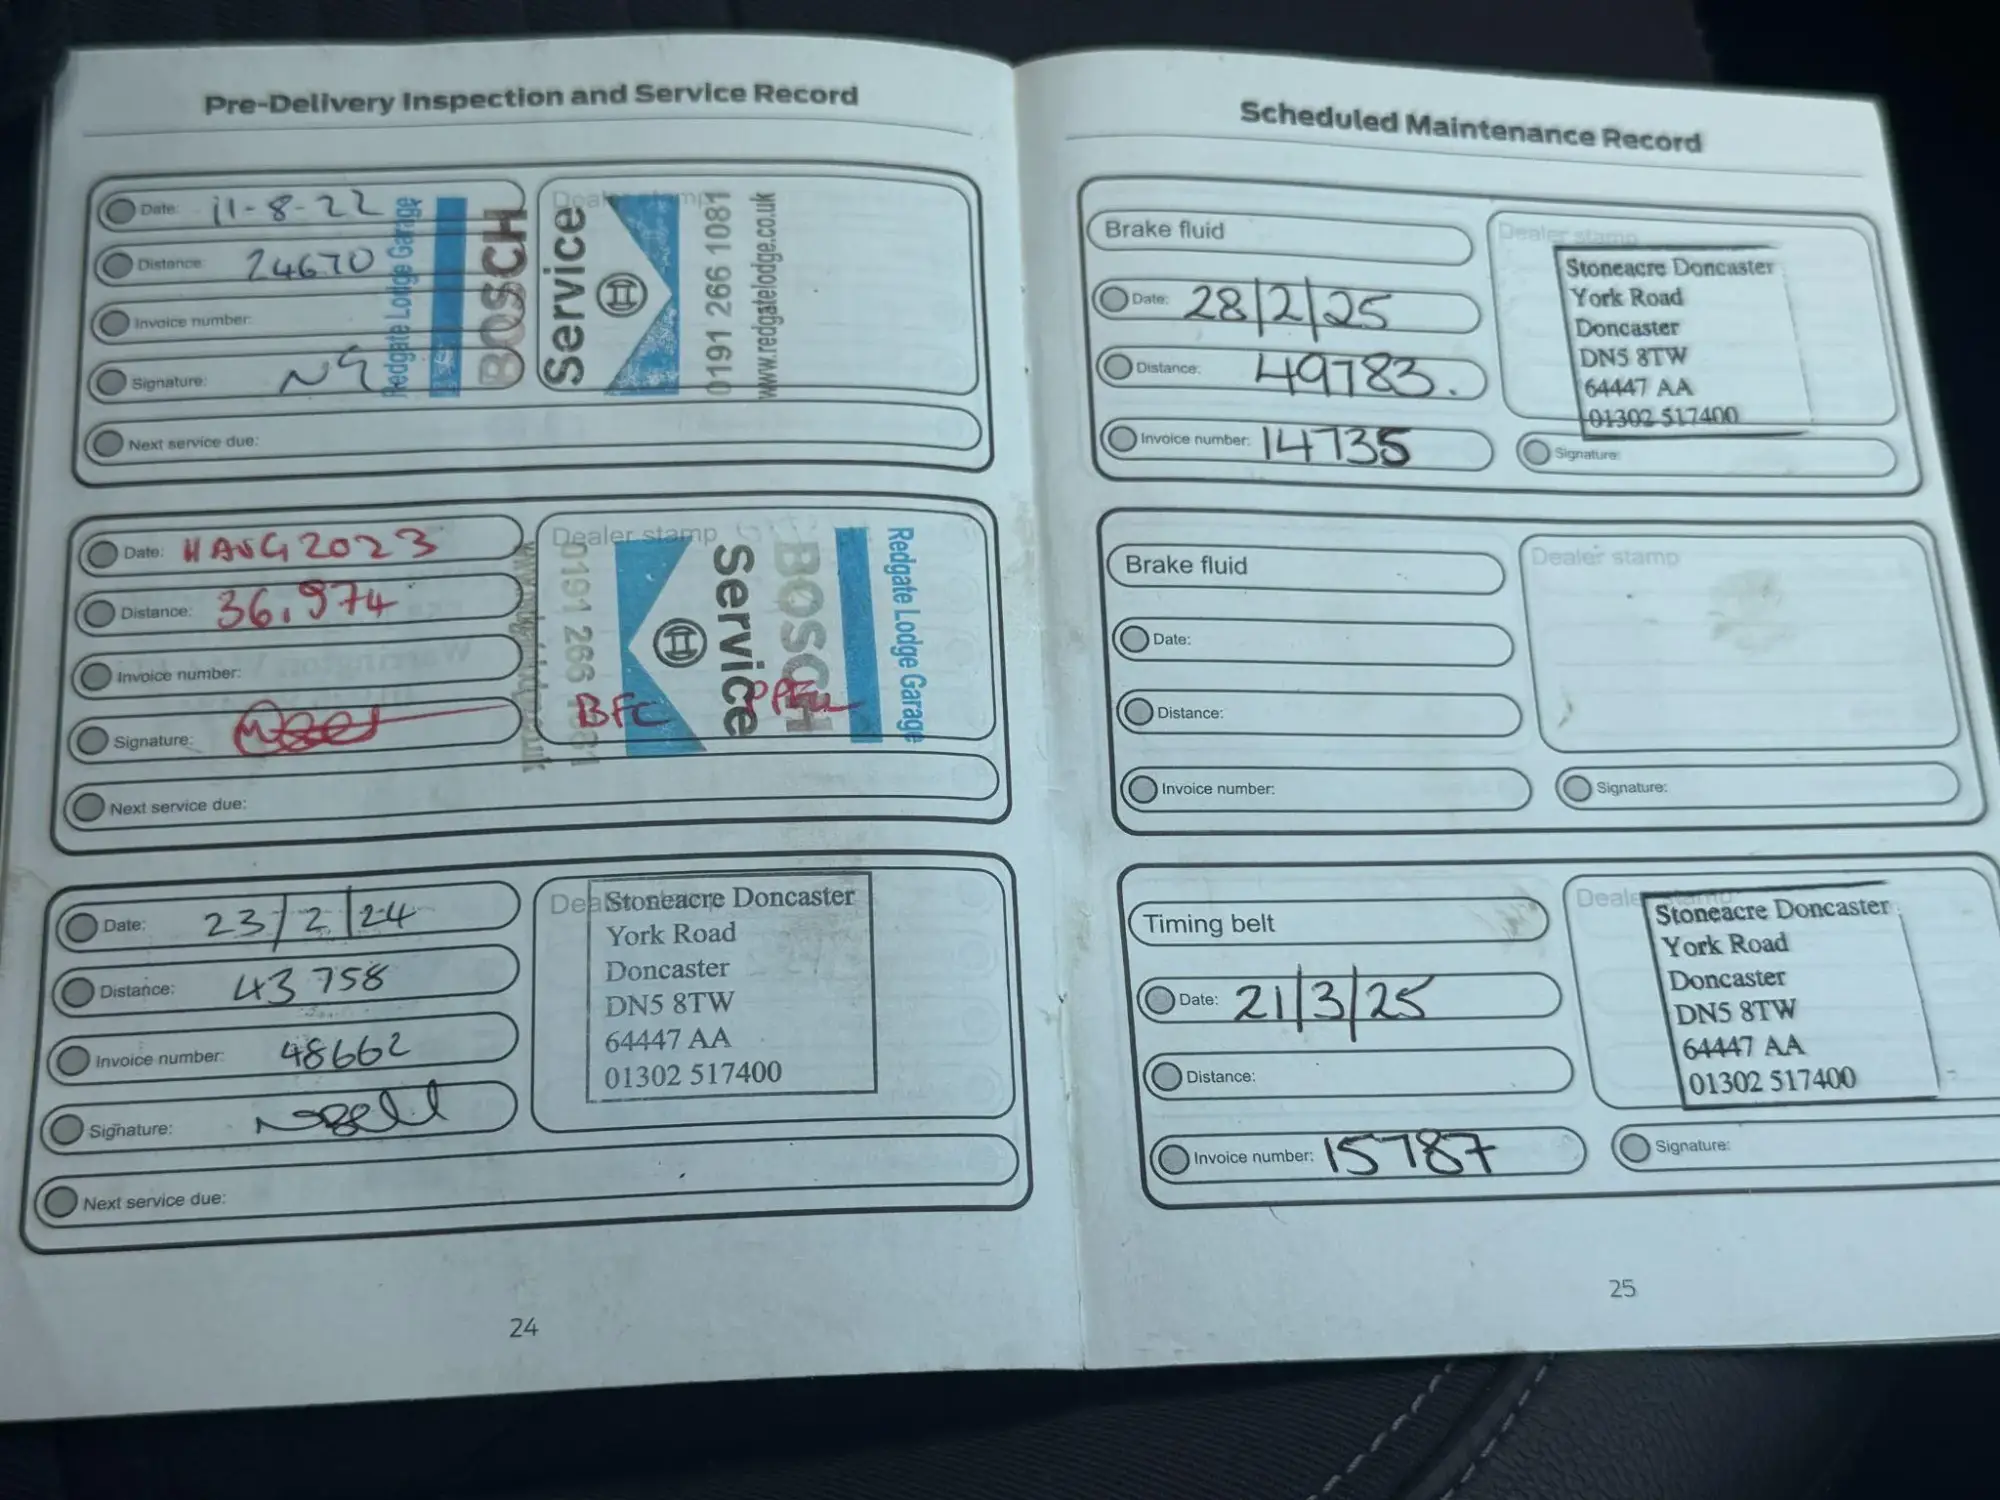 Pre-Delivery Inspection and Service Record
Date: 11-8-22
Distance: 24670
Invoice number:
Signature: NG
Next service due:
Dealer stamp
Redgate Lodge Garage
BOSCH
Service
0191 266 1081
www.redgatelodge.co.uk
Date: 11 AUG 2023
Distance: 36,974
Invoice number:
Signature:
Next service due:
Dealer stamp
Redgate Lodge Garage
BOSCH
Service
0191 266 1081
BFC
Date: 23/2/24
Distance: 43758
Invoice number: 48662
Signature:
Next service due:
Stoneacre Doncaster
York Road
Doncaster
DN5 8TW
64447 AA
01302 517400
24
Scheduled Maintenance Record
Brake fluid
Date: 28/2/25
Distance: 49783.
Invoice number: 14735
Dealer stamp
Stoneacre Doncaster
York Road
Doncaster
DN5 8TW
64447 AA
01302 517400
Signature:
Brake fluid
Date:
Distance:
Invoice number:
Dealer stamp
Signature:
Timing belt
Date: 21/3/25
Distance:
Invoice number: 15787
Dealer stamp
Stoneacre Doncaster
York Road
Doncaster
DN5 8TW
64447 AA
01302 517400
Signature:
25